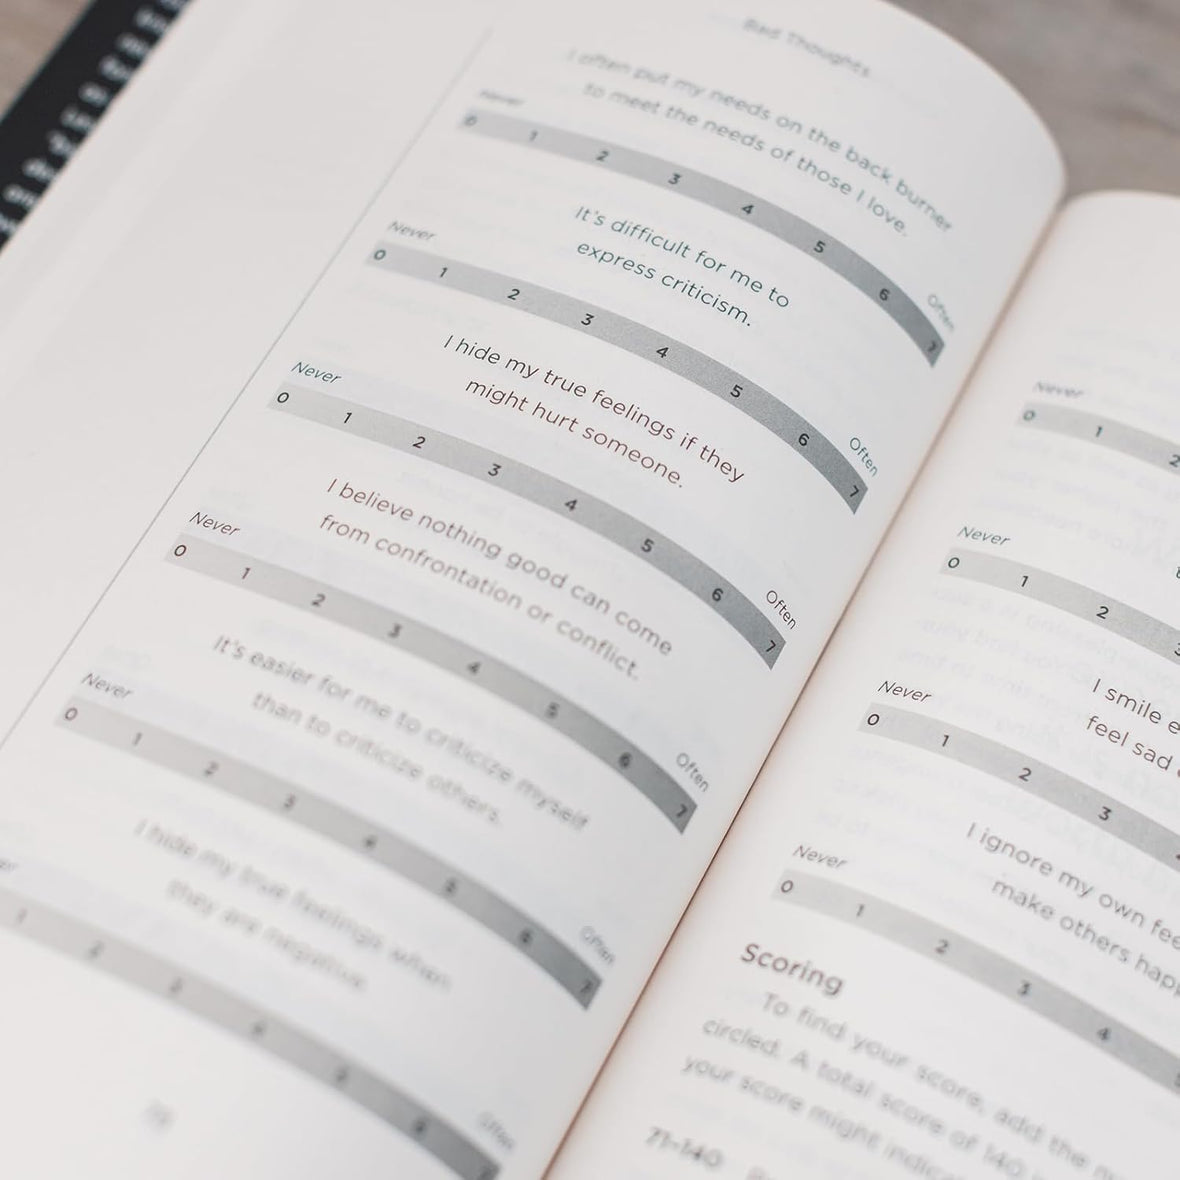 Bad Thoughts
I often put my needs on the back burner
to meet the needs of those I love.
Never
0 1 2 3 4 5 6 7
Often
It's difficult for me to
express criticism.
Never
0 1 2 3 4 5 6 7
Often
I hide my true feelings if they
might hurt someone.
Never
0 1 2 3 4 5 6 7
Often
I believe nothing good can come
from confrontation or conflict.
Never
0 1 2 3 4 5 6 7
Often
It's easier for me to criticize myself
than to criticize others.
Never
0 1 2 3 4 5 6 7
Often
I hide my true feelings when
they are negative.
1 2 3 4 5 6 7
Often
Never
0 1 2
Never
0 1 2 3
I smile e
feel sad
Never
0 1 2 3 4
I ignore my own fee
make others happ
Never
0 1 2 3 4 5
Scoring
To find your score, add the
circled. A total score of 140
your score might indica
71–140